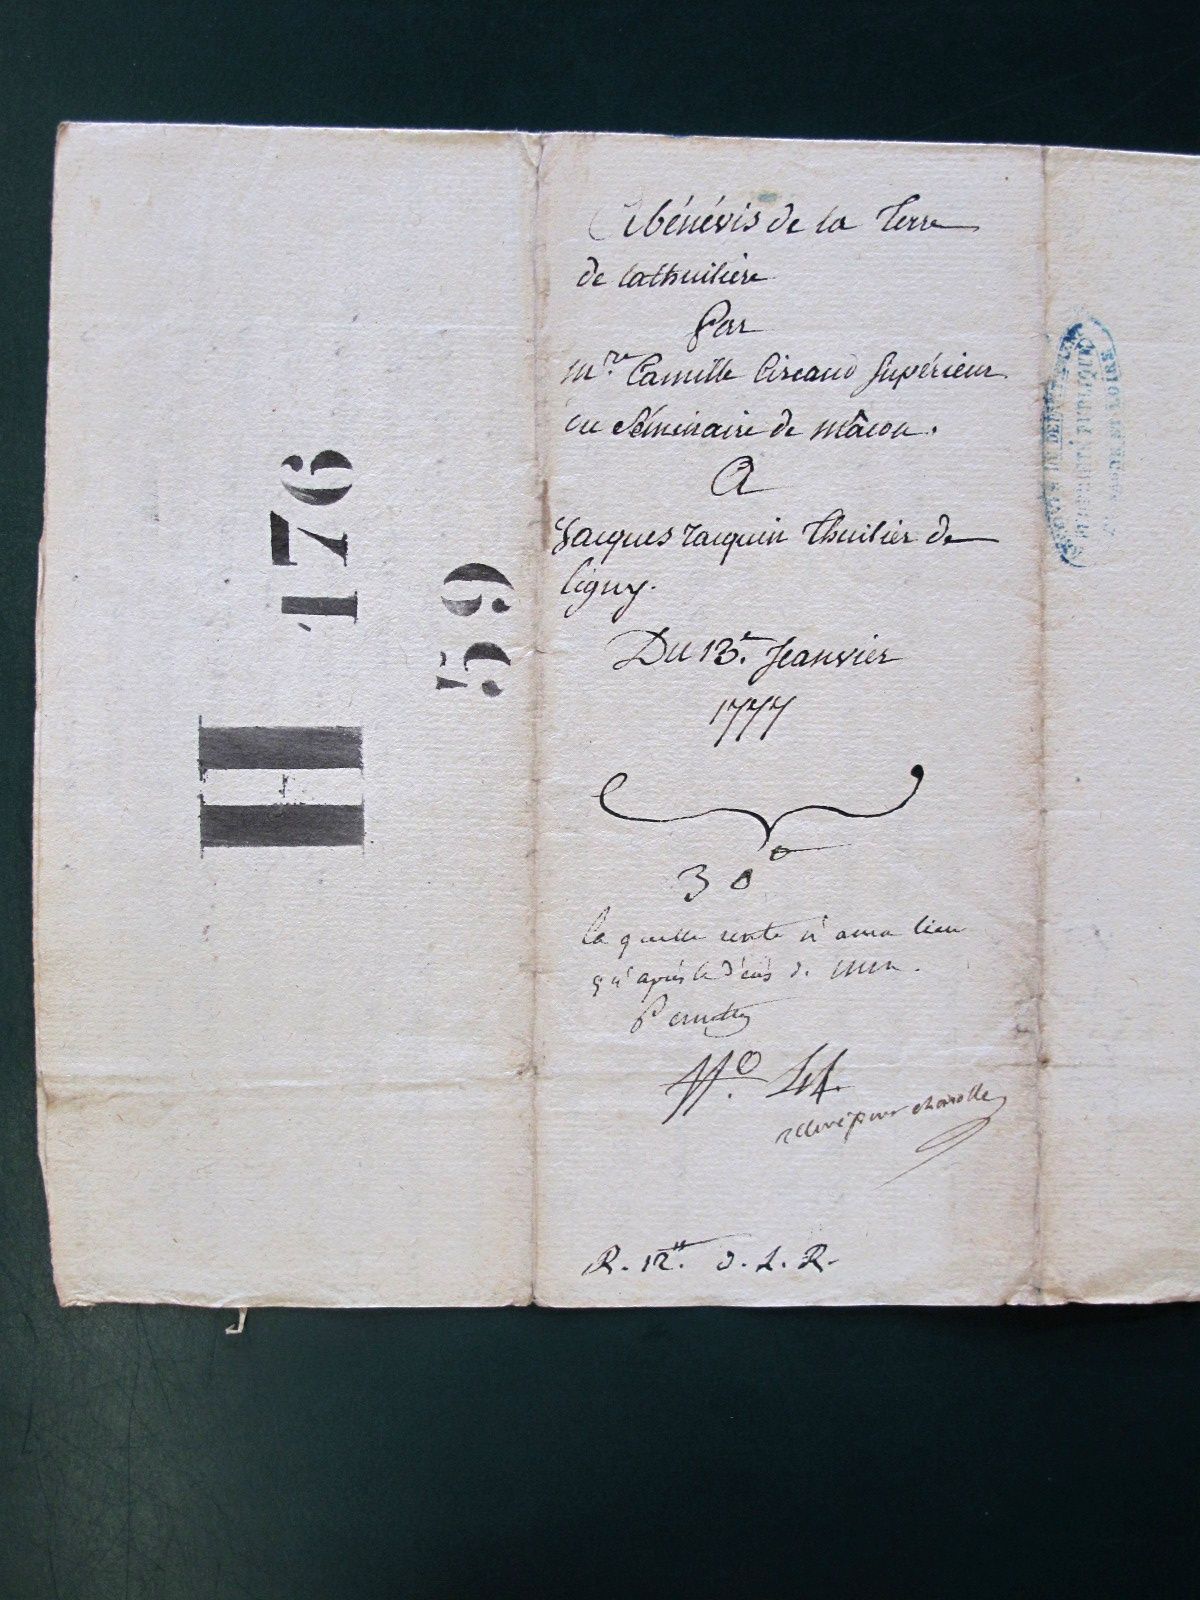 H 176
59
Abénévis de la Terre
de lathuiliere
Par
Mre. Camille Circaud Supérieur
au Séminaire de mâcon.
A
Jacques Jacquin Thuilier de
ligny.
Du 13e. Jeanvier
1777
30
la quelle rente n'aura lieu
qu'après le décès de
No. 
relevé pour charolle
R. 12tt.